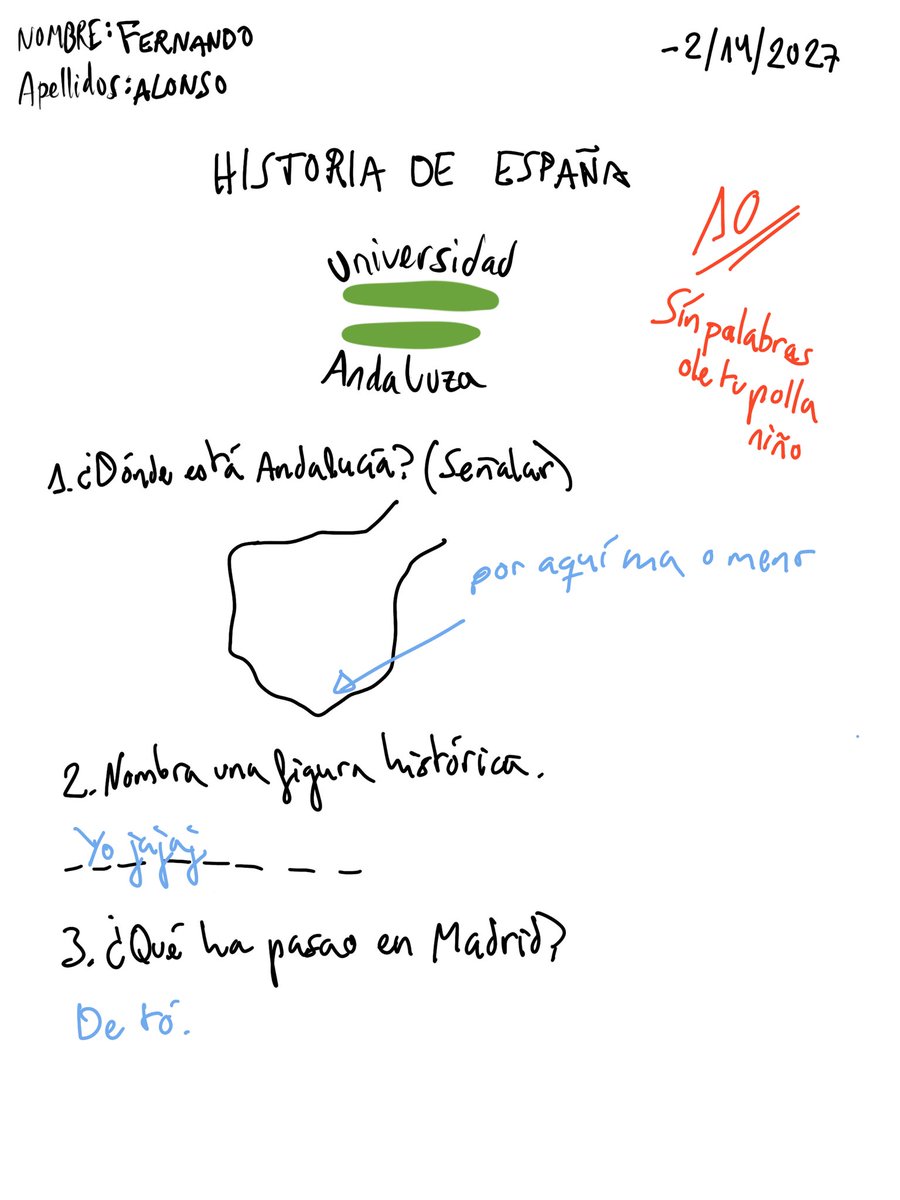 NOMBRE: FERNANDO
Apellidos: ALONSO
-2/14/2027
HISTORIA DE ESPAÑA
Universidad
Andaluza
10
Sin palabras
ole tu polla
niño
1. ¿Dónde está Andalucía? (Señalar)
por aquí ma o meno
2. Nombra una figura histórica.
Yo jajaj
3. ¿Qué ha pasao en Madrid?
De tó.